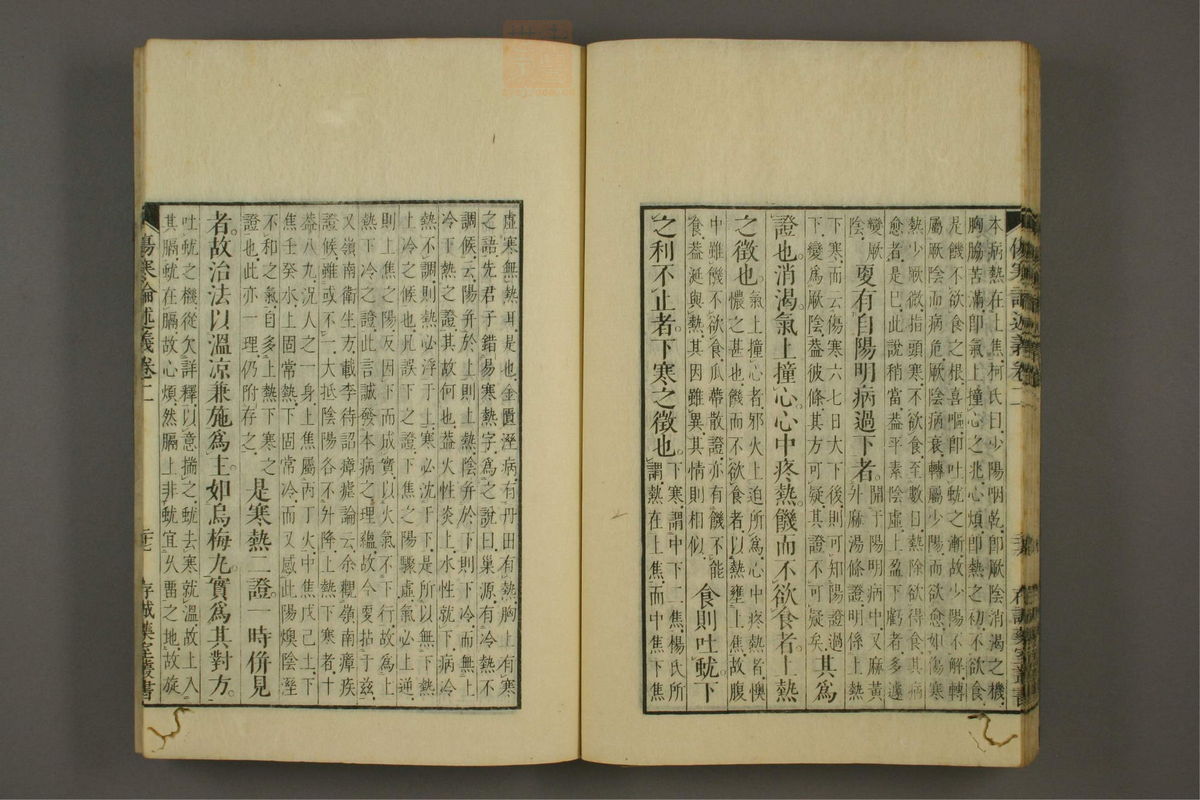 本病熱在上焦柯氏曰少陽咽乾卽厥陰消渴之機
胸脇苦滿卽氣上撞心之兆心煩卽熱之初不欲食
是饑不欲食之根喜嘔卽吐蚘之漸故少陽不解轉
屬厥陰而病危厥陰病衰轉屬少陽而欲愈如傷寒
熱少厥微指頭寒不欲食至數日熱除欲得食其病
愈者是已此說稍當蓋平素陰虛上盈下虧者多遽
變厥
陰
更有自陽明病過下者
開于陽明病中又麻黃
外麻湯條證明係上熱
下寒而云傷寒六七日大下後則可知陽證過
下變爲厥陰蓋彼條其方可疑其證不可疑矣
其爲
證也消渴氣上撞心心中疼熱饑而不欲食者上熱
之徵也
氣上撞心者邪火上迫所爲心中疼熱者懊
憹之甚也饑而不欲食者以熱壅上焦故腹
中雖饑不欲食瓜蔕散證亦有饑不能
食蓋涎與熱其因雖異其情則相似
食則吐蚘下
之利不止者下寒之徵也
下寒謂中下二焦楊氏所
謂熱在上焦而中焦下焦
虛寒無熱耳是也金匱溼病有丹田有熱胸上有寒
之語先君子錯易寒熱字爲之說曰巢源有冷熱不
調候云陽幷於上則上熱陰幷於下則下冷而無上
冷下熱之證其故何也蓋火性炎上水性就下病冷
熱不調則熱必浮于上寒必沈于下是所以無下熱
上冷之候也凡誤下之證下焦之陽驟虛氣必上逆
則上焦之陽反因下而成實以火氣不下行故爲上
熱下冷之證此言誠發本病之理蘊故今要拈于茲
又嶺南衛生方載李待詔瘴瘧論云余觀嶺南瘴疾
證候雖或不一大抵陰陽各不升降上熱下寒者十
蓋八九况人之一身上焦屬丙丁火中焦戊己土下
焦壬癸水上固常熱下固常冷而又感此陽燠陰溼
不和之氣自多上熱下寒之
證也此亦一理仍附存之
是寒熱二證一時倂見
者故治法以溫涼兼施爲主如烏梅丸實爲其對方
吐蚘之機從欠詳釋以意揣之蚘去寒就溫故上入
其膈蚘在膈故心煩然膈上非蚘宜久畱之地故旋
傷寒論述義卷二
存誠藥室叢書